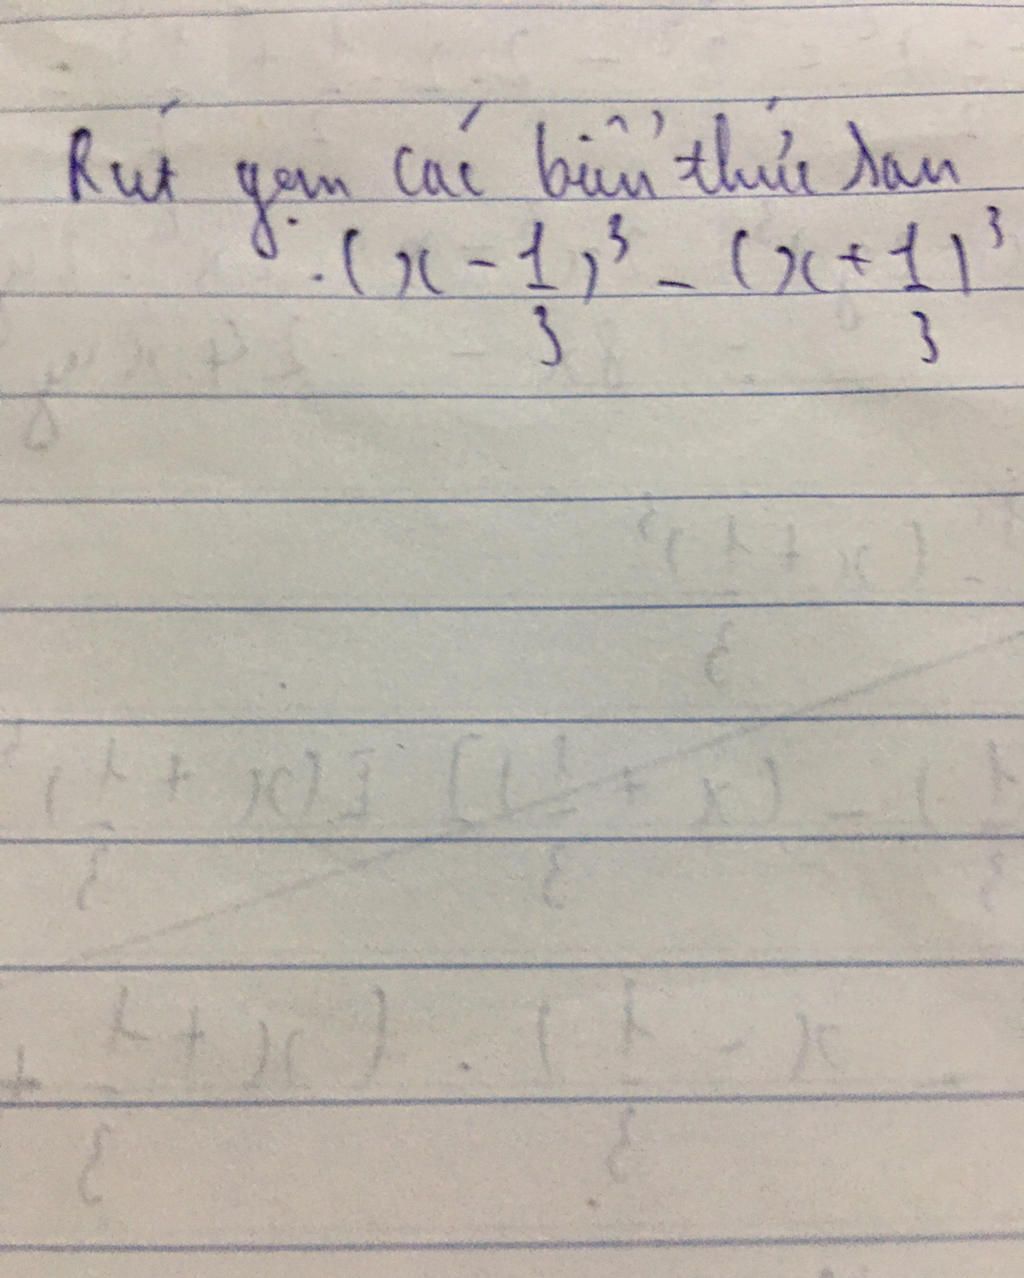 Rút gọn các biểu thức sau
. (x - 1/3)³ - (x + 1/3)³